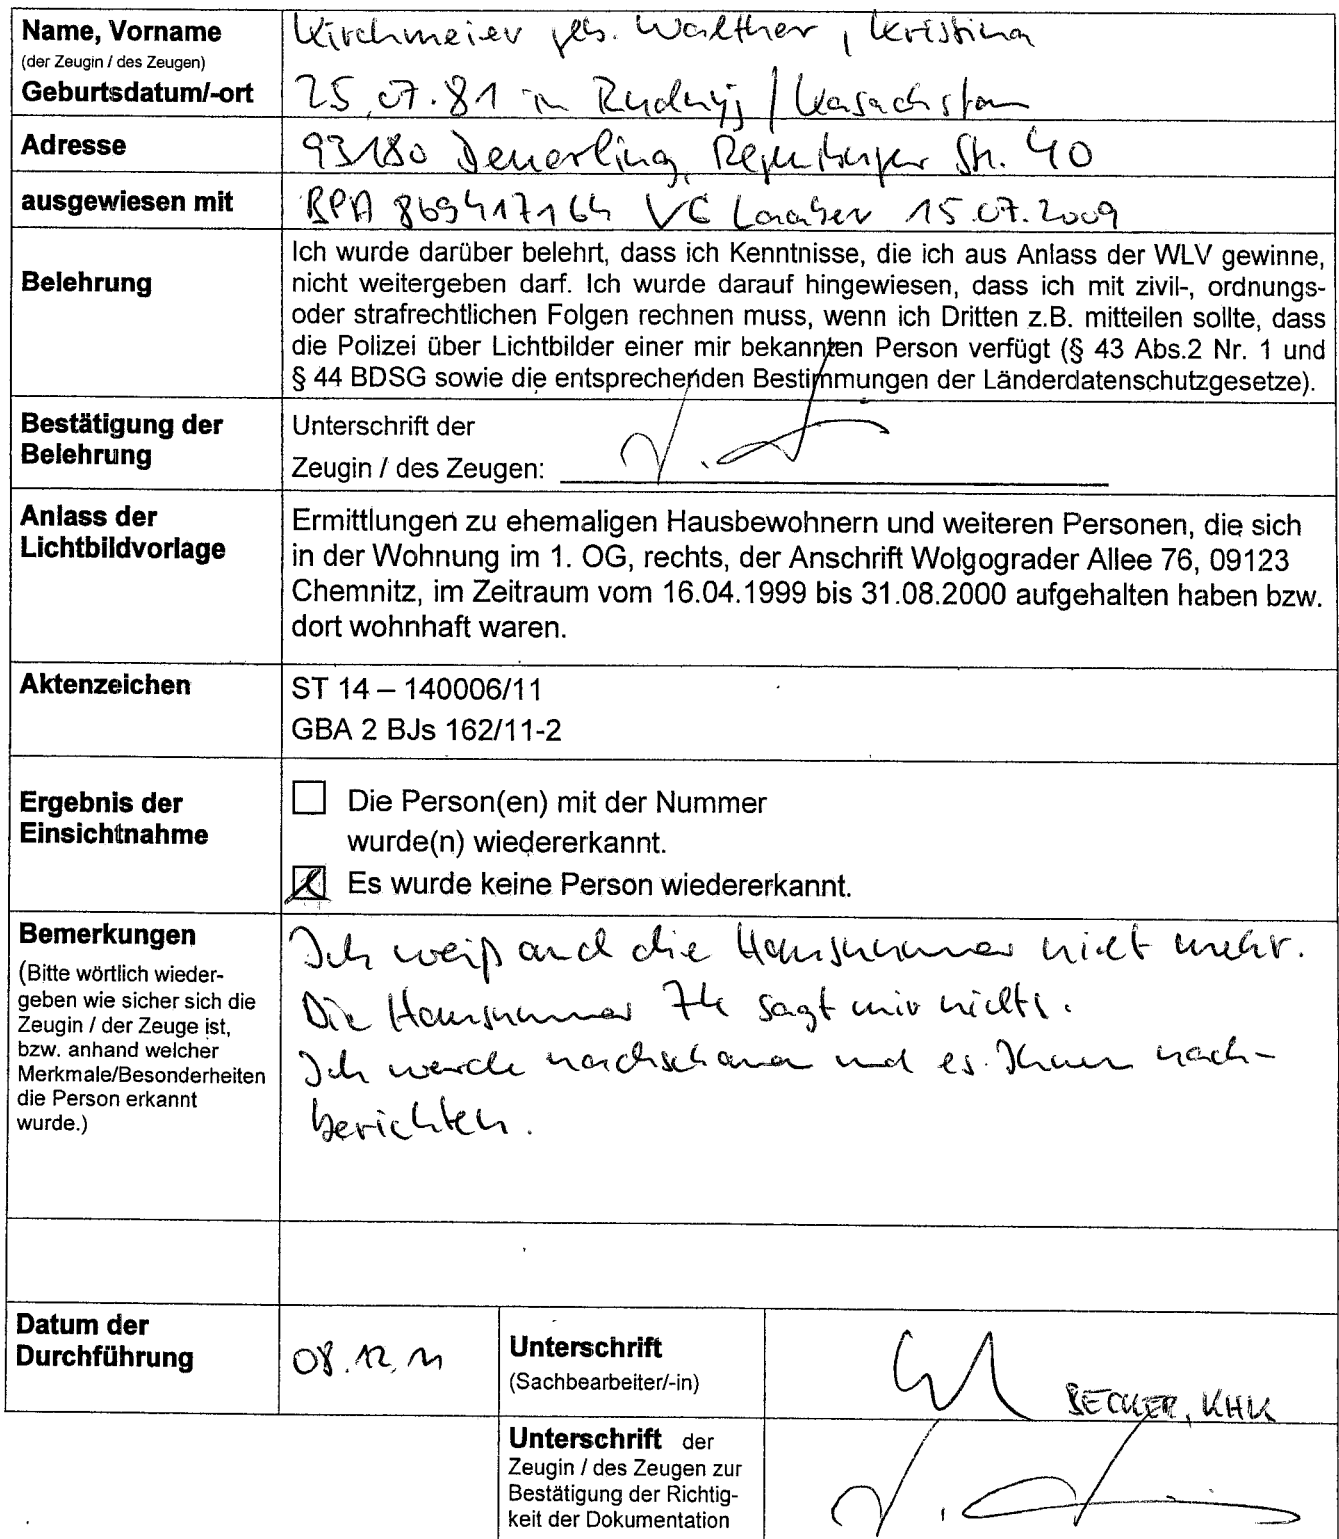 Name, Vorname
(der Zeugin / des Zeugen)
Kirchmeier geb. Walther, Kristina
Geburtsdatum/-ort
25.07.81 in Rudnyj / Kasachstan
Adresse
93180 Deuerling, Regensburger Str. 40
ausgewiesen mit
BPA 869417164 VG Laaber 15.07.2009
Belehrung
Ich wurde darüber belehrt, dass ich Kenntnisse, die ich aus Anlass der WLV gewinne,
nicht weitergeben darf. Ich wurde darauf hingewiesen, dass ich mit zivil-, ordnungs-
oder strafrechtlichen Folgen rechnen muss, wenn ich Dritten z.B. mitteilen sollte, dass
die Polizei über Lichtbilder einer mir bekannten Person verfügt (§ 43 Abs.2 Nr. 1 und
§ 44 BDSG sowie die entsprechenden Bestimmungen der Länderdatenschutzgesetze).
Bestätigung der
Belehrung
Unterschrift der
Zeugin / des Zeugen:
Anlass der
Lichtbildvorlage
Ermittlungen zu ehemaligen Hausbewohnern und weiteren Personen, die sich
in der Wohnung im 1. OG, rechts, der Anschrift Wolgograder Allee 76, 09123
Chemnitz, im Zeitraum vom 16.04.1999 bis 31.08.2000 aufgehalten haben bzw.
dort wohnhaft waren.
Aktenzeichen
ST 14 – 140006/11
GBA 2 BJs 162/11-2
Ergebnis der
Einsichtnahme
Die Person(en) mit der Nummer
wurde(n) wiedererkannt.
Es wurde keine Person wiedererkannt.
Bemerkungen
(Bitte wörtlich wieder-
geben wie sicher sich die
Zeugin / der Zeuge ist,
bzw. anhand welcher
Merkmale/Besonderheiten
die Person erkannt
wurde.)
Ich weiß auch die Hausnummer nicht mehr.
Die Hausnummer 74 sagt mir nichts.
Ich werde nachschauen und es Ihnen nach-
berichten.
Datum der
Durchführung
08.12.11
Unterschrift
(Sachbearbeiter/-in)
BECKER, KHK
Unterschrift der
Zeugin / des Zeugen zur
Bestätigung der Richtig-
keit der Dokumentation